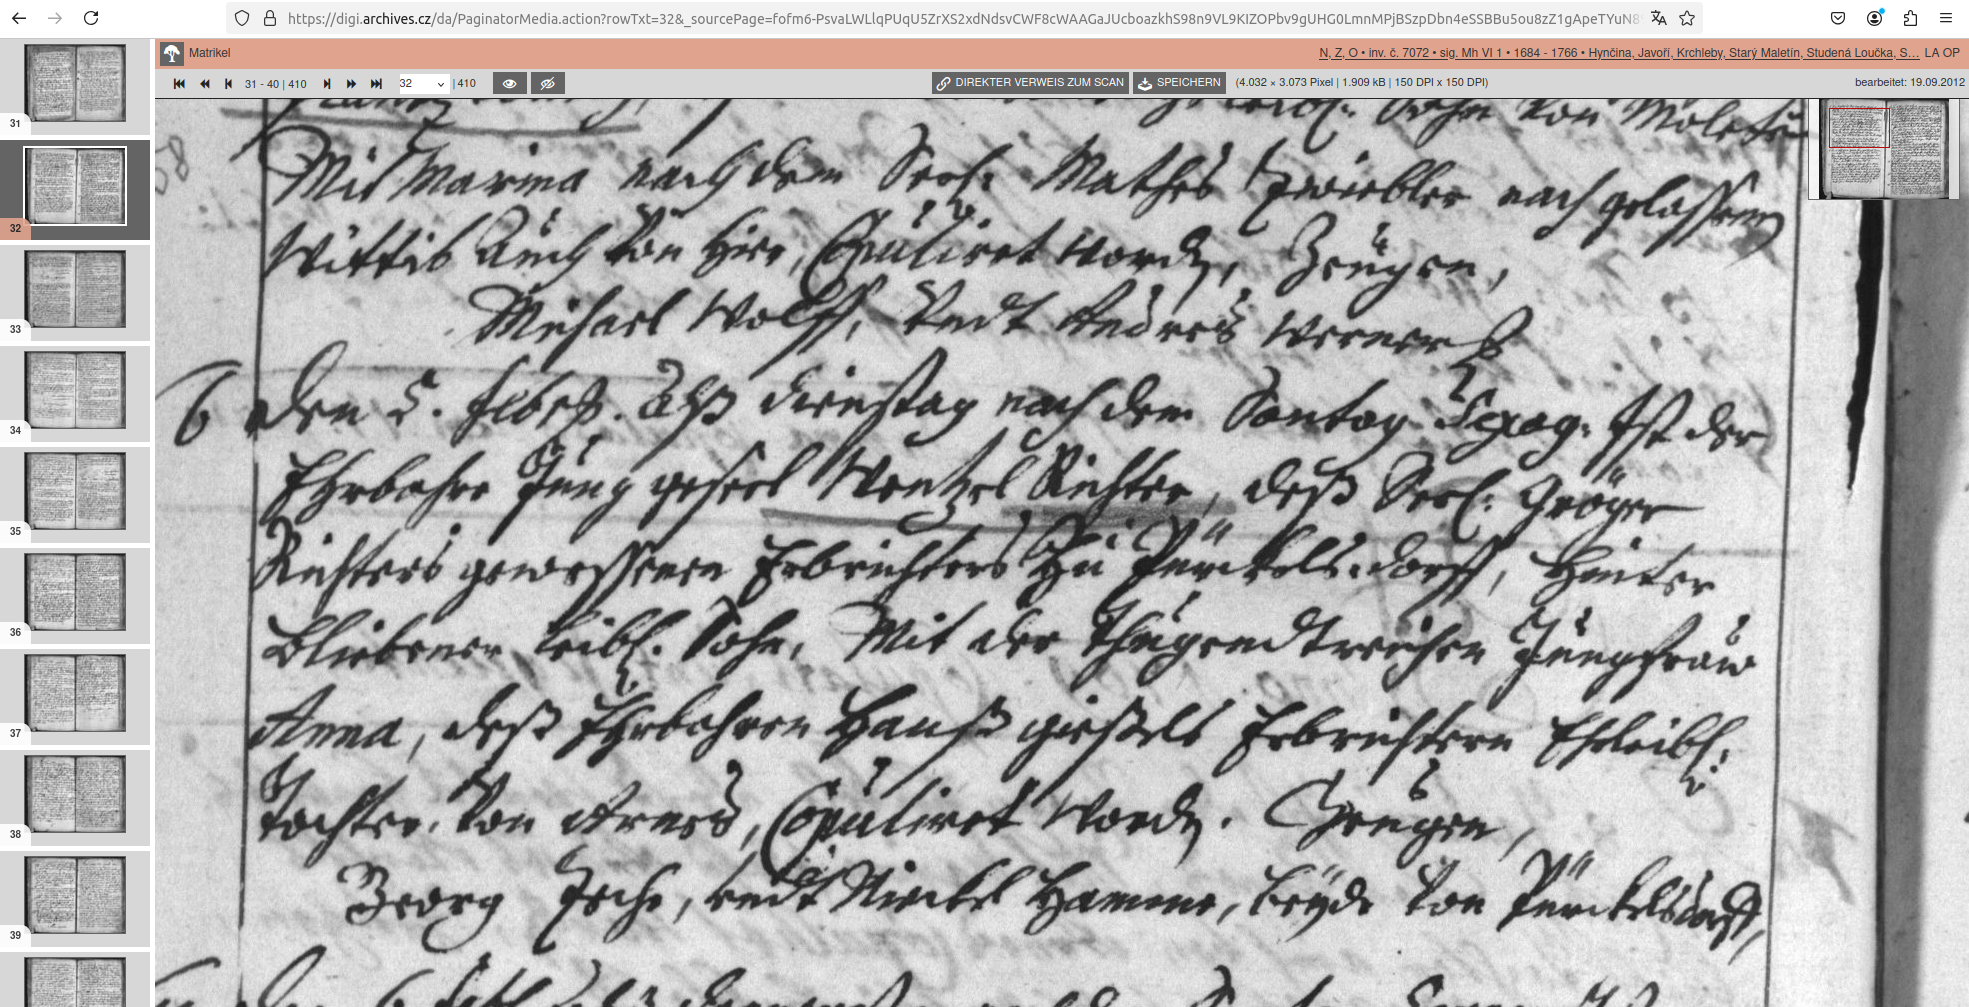 https://digi.archives.cz/da/PaginatorMedia.action?rowTxt=32&_sourcePage=fofm6-PsvaLWLlqPUqU5ZrXS2xdNdsvCWF8cWAAGaJUcboazkhS98n9VL9KIZOPbv9gUHG0LmnMPjBSzpDbn4eSSBBu5ou8zZ1gApeTYuN8
Matrikel
N, Z, O • inv. č. 7072 • sig. Mh VI 1 • 1684 - 1766 • Hynčina, Javoří, Krchleby, Starý Maletín, Studená Loučka, S... LA OP
31 - 40 | 410
32
| 410
DIREKTER VERWEIS ZUM SCAN
SPEICHERN
(4.032 × 3.073 Pixel | 1.909 kB | 150 DPI x 150 DPI)
bearbeitet: 19.09.2012
31
32
33
34
35
36
37
38
39
Sohn von
Mit Marina nach dem Seel: Mathes nach gelassenen
Wittib auch von hier, Copuliret word, Zeugen,
Michael Wolff, Undt Andres Werner
6 den 5. Febr. Alß dienstag nach dem Sontag Sexag: Ist der
Ehrbahre Jung gesell Wentzel Richter, deß Seel: Gröger
Richters gewessenen Erbrichters zu Pürckelsdorff, Hinter
bliebener leibl. Sohn, Mit der Thugendtreichen Jungfraw
Anna, deß Ehrbahren Hanß gießels Erbrichters Ehleibl:
Tochter, Von Copuliret word. Zeugen,
Georg undt Nickel Hamme, beyde von Pürckelsdorff,